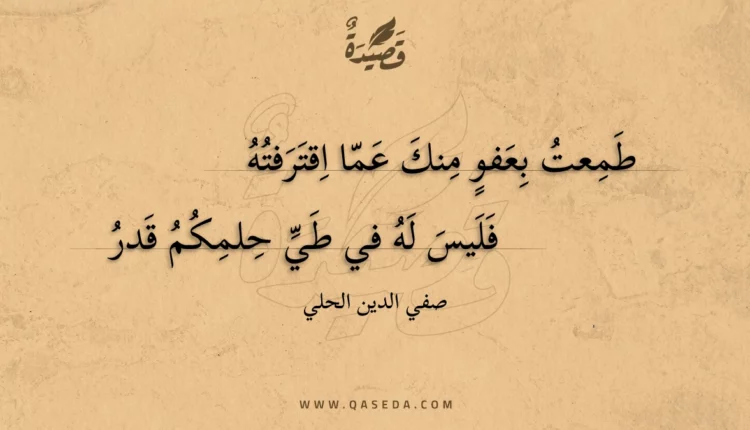 قَصِيدَةٌ
طَمِعتُ بِعَفوٍ مِنكَ عَمّا اِقتَرَفتُهُ
فَلَيسَ لَهُ في طَيِّ حِلمِكُمُ قَدرُ
صفي الدين الحلي
WWW.QASEDA.COM